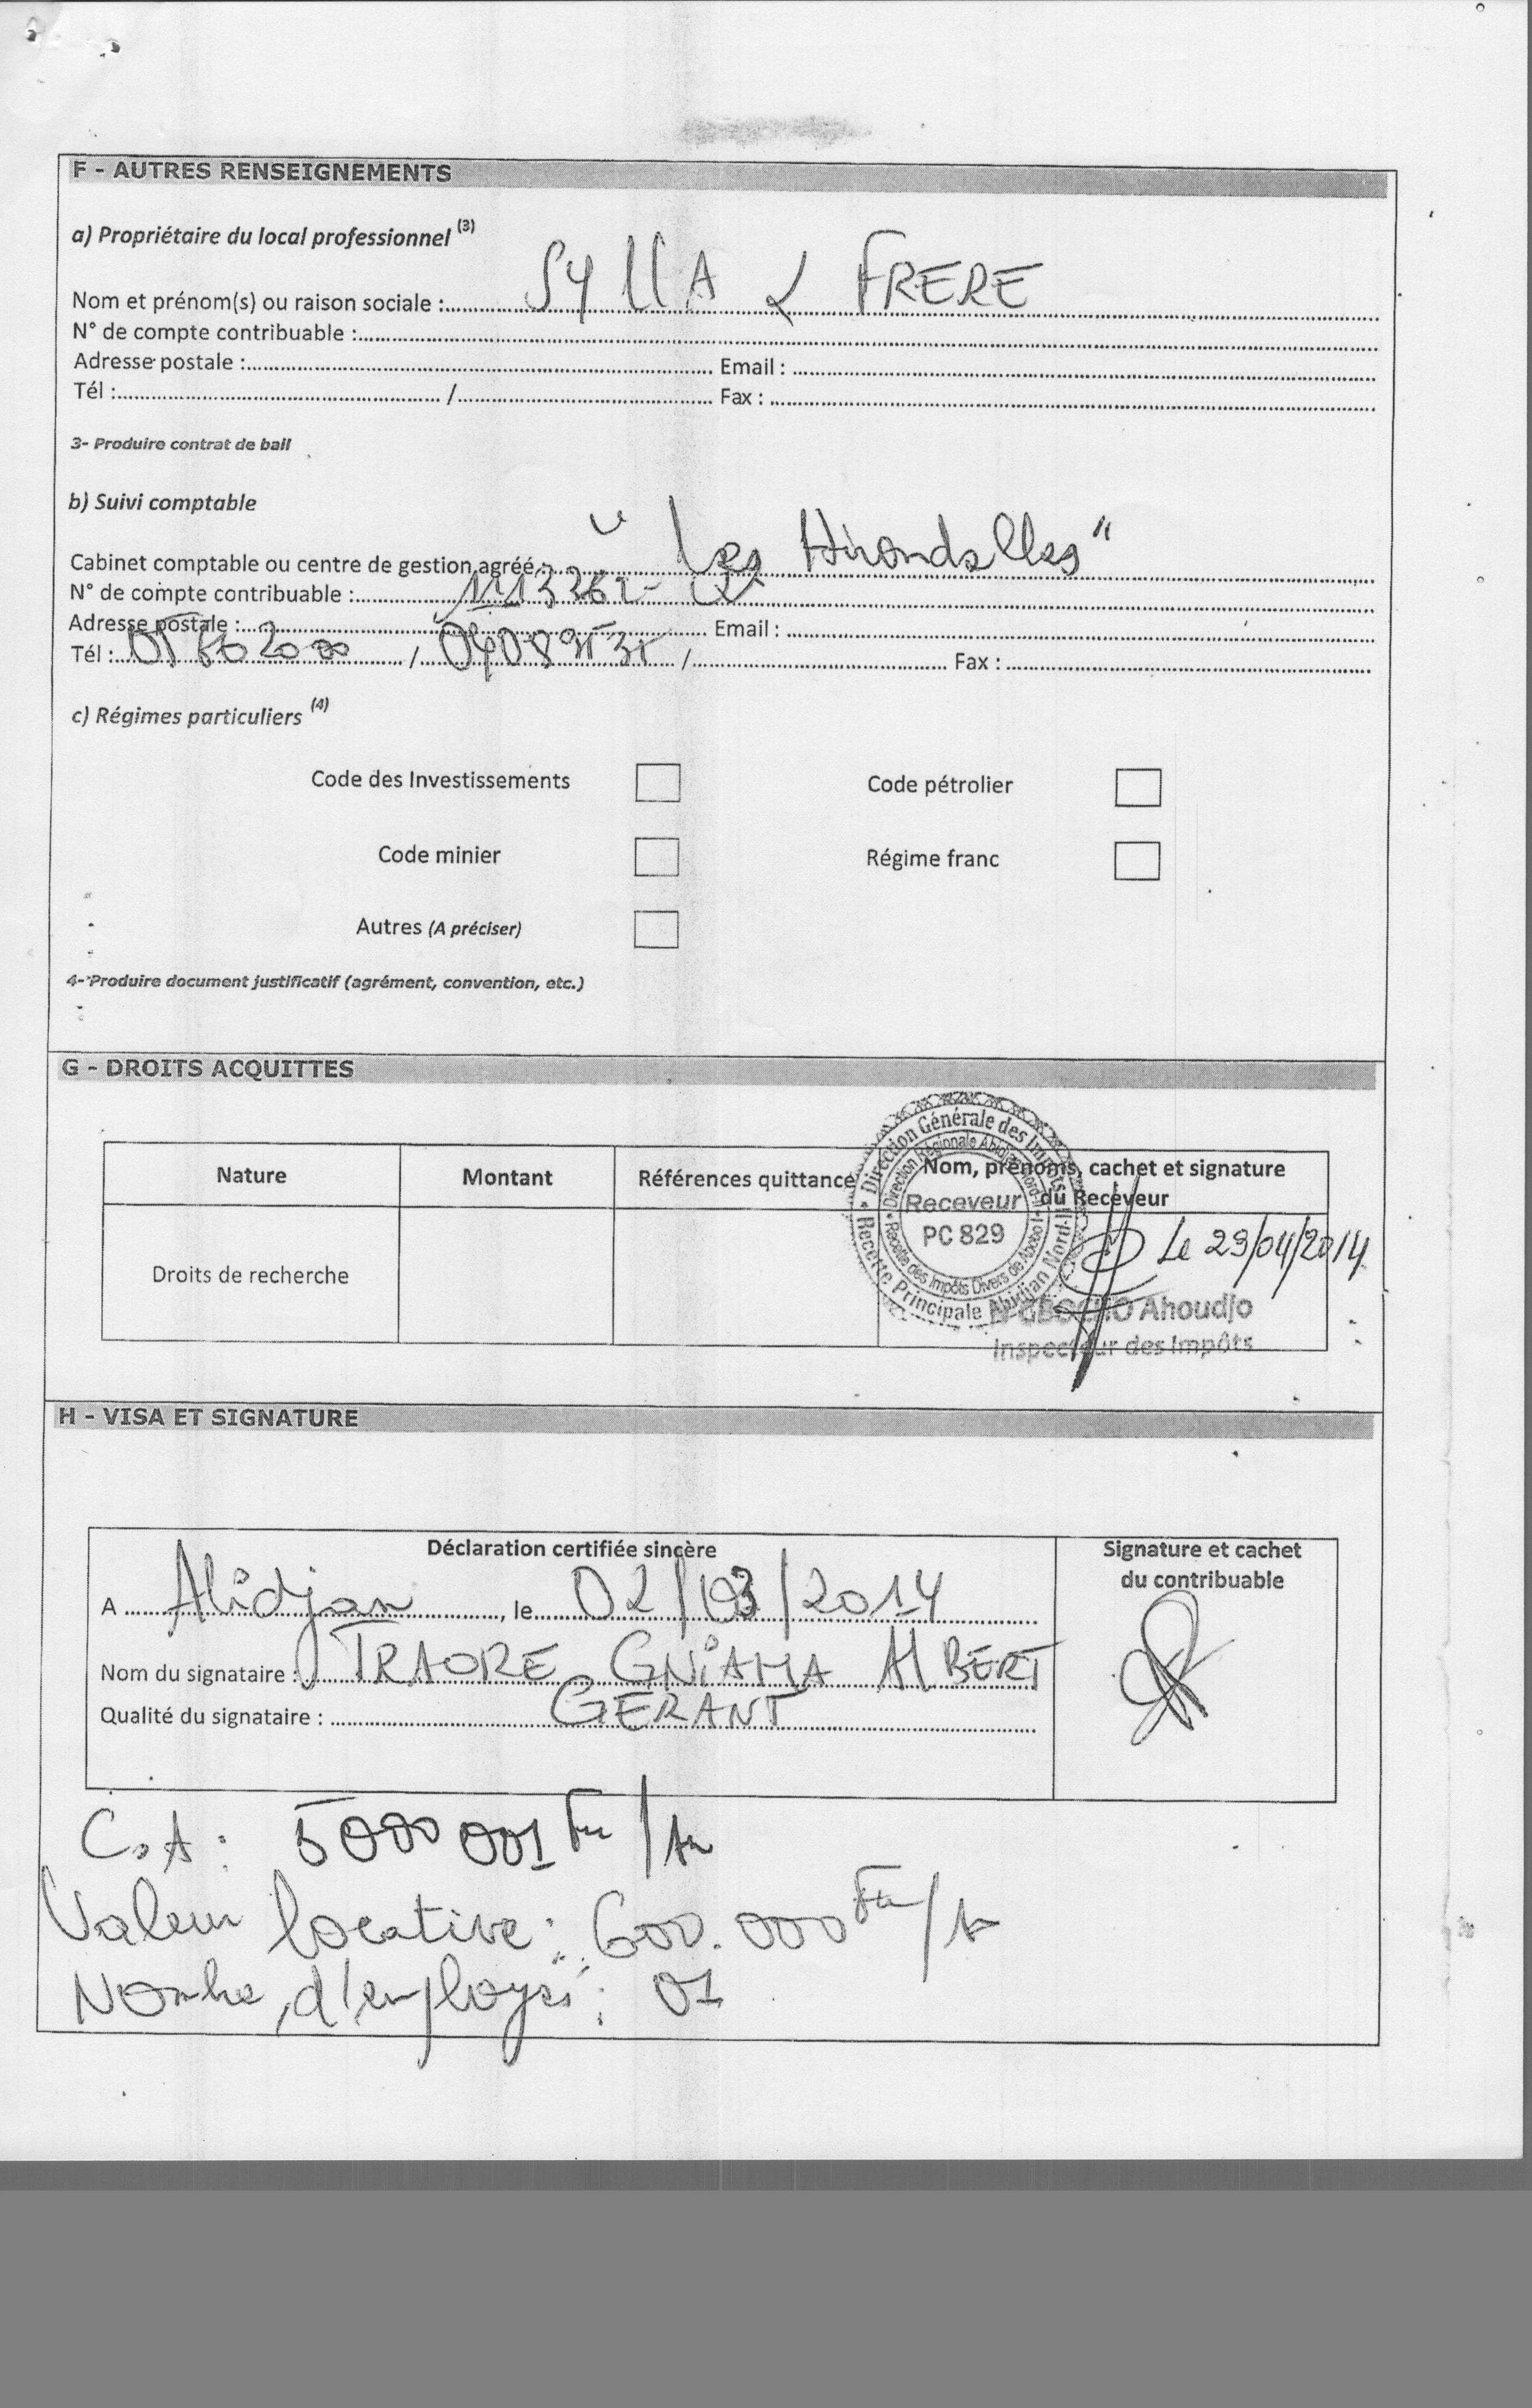 F - AUTRES RENSEIGNEMENTS
a) Propriétaire du local professionnel (3)
Nom et prénom(s) ou raison sociale : SYLLA & FRERE
N° de compte contribuable :
Adresse postale : Email :
Tél : / Fax :
3- Produire contrat de bail
b) Suivi comptable
Cabinet comptable ou centre de gestion agréé : "Les Hirondelles"
N° de compte contribuable :
Adresse postale : Email :
Tél : / / Fax :
c) Régimes particuliers (4)
Code des Investissements Code pétrolier
Code minier Régime franc
Autres (A préciser)
4- Produire document justificatif (agrément, convention, etc.)
G - DROITS ACQUITTES
Nature Montant Références quittance Nom, prénoms, cachet et signature
du Receveur
Direction Générale des Impôts
Recette Principale Abidjan Nord
Recette des Impôts Divers de Abobo
Receveur
PC 829
Le 29/04/2014
Droits de recherche
Ahoudjo
Inspecteur des Impôts
H - VISA ET SIGNATURE
Déclaration certifiée sincère Signature et cachet
du contribuable
A Abidjan, le 02/03/2014
Nom du signataire : TRAORE GNIAMA ALBERT
Qualité du signataire : GERANT
C.A : 5000 001 F /An
Valeur locative : 600.000 F /An
Nombre d'employés : 01